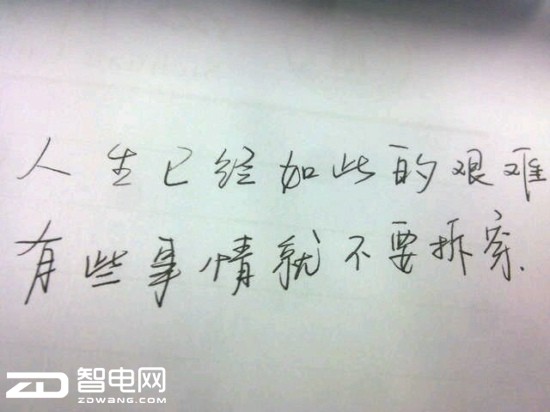 人生已经如此的艰难
有些事情就不要拆穿.
ZD 智电网
ZDWANG.COM